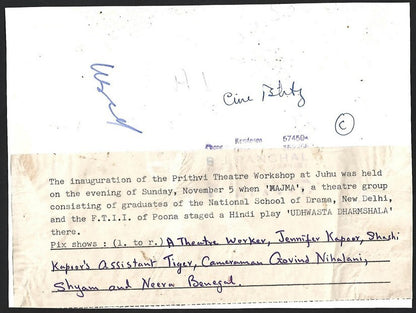 Cine Blitz
C
Phone
The inauguration of the Prithvi Theatre Workshop at Juhu was held
on the evening of Sunday, November 5 when 'MAJMA', a theatre group
consisting of graduates of the National School of Drama, New Delhi,
and the F.T.I.I. of Poona staged a Hindi play 'UDHWASTA DHARMSHALA'
there.
Pix shows : (l. to r.) A Theatre Worker, Jennifer Kapoor, Shashi
Kapoor's Assistant Tiger, Cameraman Govind Nihalani,
Shyam and Neera Benegal.